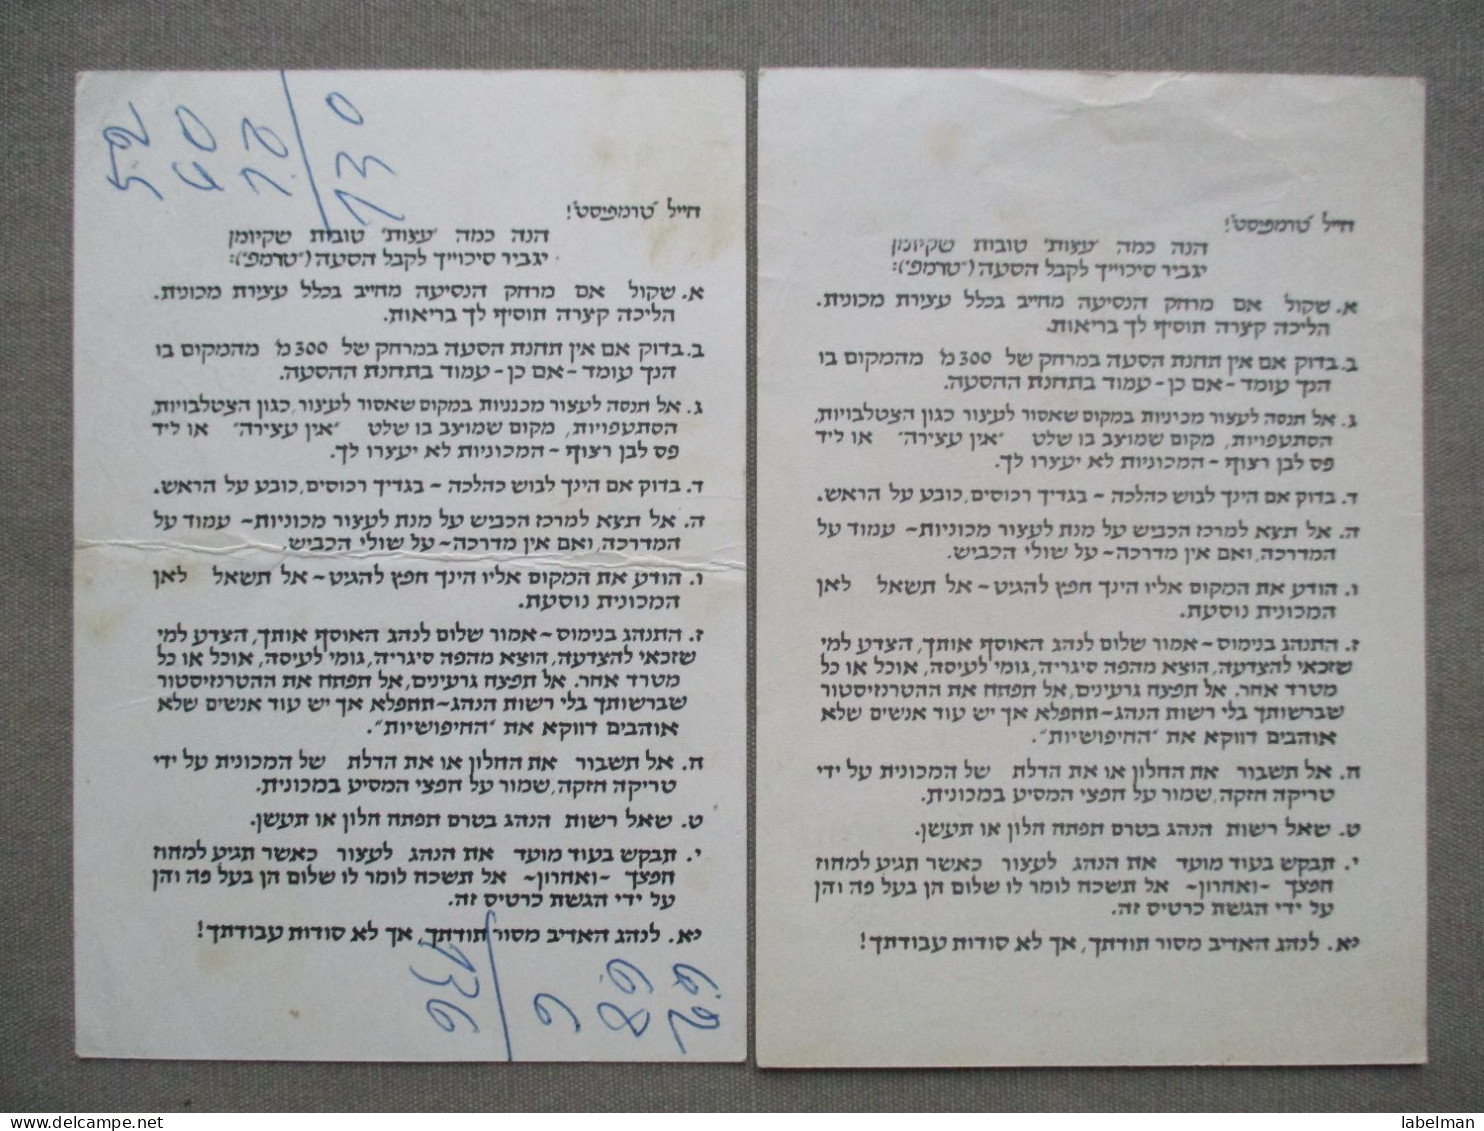 חייל "טרמפיסט"!
הנה כמה "עצות" טובות שקיומן
יגביר סיכוייך לקבל הסעה ("טרמפ"):
א. שקול אם מרחק הנסיעה מחייב בכלל עצירת מכונית.
הליכה קצרה תוסיף לך בריאות.
ב. בדוק אם אין תחנת הסעה במרחק של 300 מ' מהמקום בו
הנך עומד - אם כן - עמוד בתחנת ההסעה.
ג. אל תנסה לעצור מכוניות במקום שאסור לעצור, כגון הצטלבויות,
הסתעפויות, מקום שמוצב בו שלט "אין עצירה" או ליד
פס לבן רצוף - המכוניות לא יעצרו לך.
ד. בדוק אם הינך לבוש כהלכה - בגדיך רכוסים, כובע על הראש.
ה. אל תצא למרכז הכביש על מנת לעצור מכוניות - עמוד על
המדרכה, ואם אין מדרכה - על שולי הכביש.
ו. הודע את המקום אליו הינך חפץ להגיט - אל תשאל לאן
המכונית נוסעת.
ז. התנהג בנימוס - אמור שלום לנהג האוסף אותך, הצדע למי
שזכאי להצדעה, הוצא מהפה סיגריה, גומי לעיסה, אוכל או כל
מטרד אחר. אל תפצח גרעינים, אל תפתח את ההטרנזיסטור
שברשותך בלי רשות הנהג - תתפלא אך יש עוד אנשים שלא
אוהבים דווקא את "החיפושיות".
ח. אל תשבור את החלון או את הדלת של המכונית על ידי
טריקה חזקה, שמור על חפצי המסיע במכונית.
ט. שאל רשות הנהג בטרם תפתח חלון או תעשן.
י. תבקש בעוד מועד את הנהג לעצור כאשר תגיע למחוז
חפצך - ואחרון - אל תשכח לומר לו שלום הן בעל פה והן
על ידי הגשת כרטיס זה.
יא. לנהג האדיב מסור תודתך, אך לא סודות עבודתך!
חייל "טרמפיסט"!
הנה כמה "עצות" טובות שקיומן
יגביר סיכוייך לקבל הסעה ("טרמפ"):
א. שקול אם מרחק הנסיעה מחייב בכלל עצירת מכונית.
הליכה קצרה תוסיף לך בריאות.
ב. בדוק אם אין תחנת הסעה במרחק של 300 מ' מהמקום בו
הנך עומד - אם כן - עמוד בתחנת ההסעה.
ג. אל תנסה לעצור מכוניות במקום שאסור לעצור כגון הצטלבויות,
הסתעפויות, מקום שמוצב בו שלט "אין עצירה" או ליד
פס לבן רצוף - המכוניות לא יעצרו לך.
ד. בדוק אם הינך לבוש כהלכה - בגדיך רכוסים, כובע על הראש.
ה. אל תצא למרכז הכביש על מנת לעצור מכוניות - עמוד על
המדרכה, ואם אין מדרכה - על שולי הכביש.
ו. הודע את המקום אליו הינך חפץ להגיט - אל תשאל לאן
המכונית נוסעת.
ז. התנהג בנימוס - אמור שלום לנהג האוסף אותך, הצדע למי
שזכאי להצדעה, הוצא מהפה סיגריה, גומי לעיסה, אוכל או כל
מטרד אחר. אל תפצח גרעינים, אל תפתח את ההטרנזיסטור
שברשותך בלי רשות הנהג - תתפלא אך יש עוד אנשים שלא
אוהבים דווקא את "החיפושיות".
ח. אל תשבור את החלון או את הדלת של המכונית על ידי
טריקה חזקה, שמור על חפצי המסיע במכונית.
ט. שאל רשות הנהג בטרם תפתח חלון או תעשן.
י. תבקש בעוד מועד את הנהג לעצור כאשר תגיע למחוז
חפצך - ואחרון - אל תשכח לומר לו שלום הן בעל פה והן
על ידי הגשת כרטיס זה.
יא. לנהג האדיב מסור תודתך, אך לא סודות עבודתך!
labelman
delcampe.net